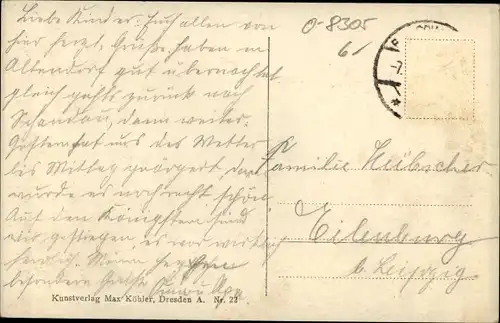 Liebe Kinder! Euch allen von
hier herzl. Grüße, haben in
Altendorf gut übernachtet
gleich gehts zurück nach
Schandau, dann weiter.
Gestern hat uns das Wetter
bis Mittag geärgert, dan
wurde es noch recht schön
Auf den Königstein sind
wir gestiegen, es war wirklich
herrlich.
besonders
O-8305
6/
Familie Hübscher
Eilenburg
b. Leipzig.
Kunstverlag Max Köhler, Dresden A. Nr. 22